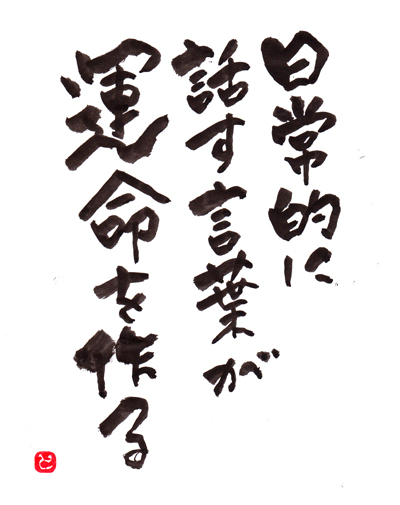 日常的に
話す言葉が
運命を作る
と